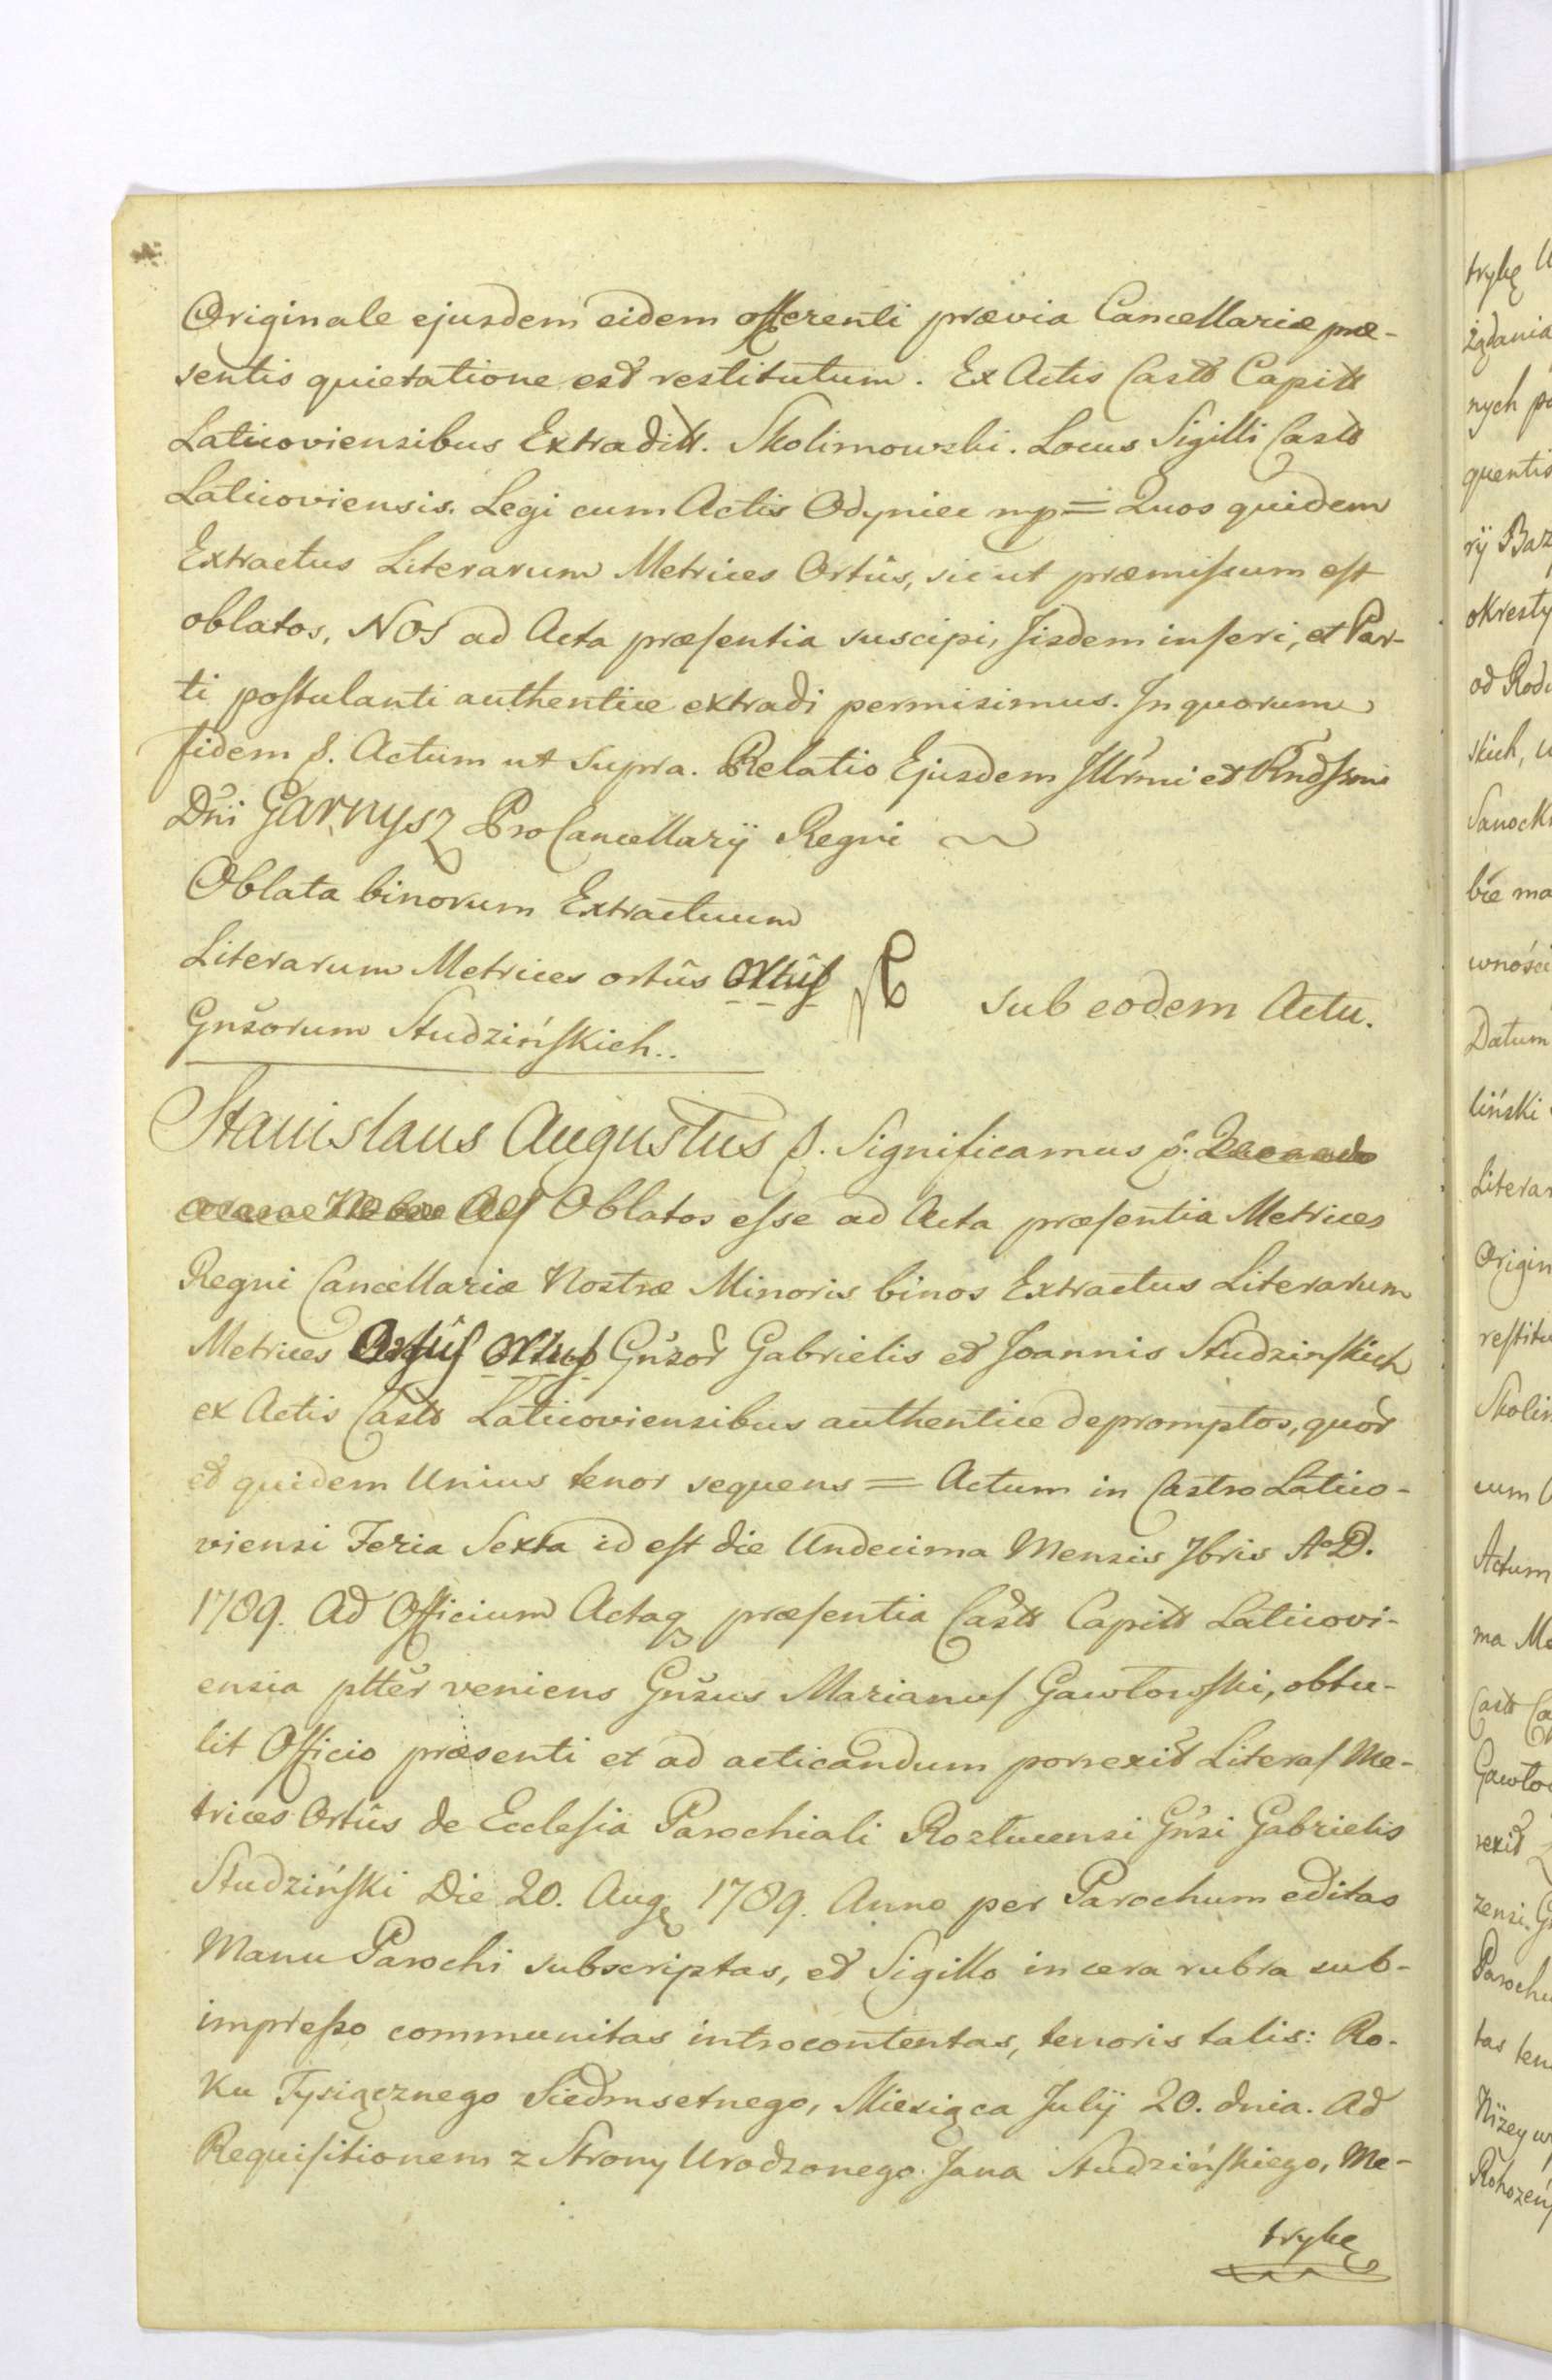 Originale ejusdem eidem offerenti prævia Cancellariæ præ-
sentis quietatione est restitutum. Ex Actis Castr Capitt
Laticoviensibus Extraditt. Skolimowski. Locus Sigilli Castr
Laticoviensis. Legi cum Actis Odyniec mp = Quos quidem
Extractus Literarum Metrices Ortûs, sicut præmissum est
oblatos, NOS ad Acta præsentia suscipi, Jisdem inseri, et Par-
ti postulanti authentice extradi permisimus. In quorum
fidem &. Actum ut Supra. Relatio Ejusdem Illrmi et Rndssmi
Dni Garnysz ProCancellarÿ Regni
Oblata binorum Extractuum
Literarum Metrices ortûs Ortûs
Gnšorum Studzińskich..
sub eodem Actu.
Stanislaus Augustus &. Significamus &.
Oblatos esse ad Acta præsentia Metrices
Regni Cancellariæ Nostræ Minoris binos Extractus Literarum
Metrices Ortûs Ortus Gnsor Gabrielis et Joannis Studzinskich
ex Actis Castr Laticoviensibus authentice depromptos, quor
et quidem Unius tenor sequens = Actum in Castro Latico-
viensi Feria Sexta id est die Undecima Mensis 7bris AoD.
1789. Ad Officium Actaq præsentia Castr Capitt Laticovi-
ensia ptter veniens Gnsus Marianus Gawłowski, obtu-
lit Officio præsenti et ad acticandum porrexit Literas Me-
trices Ortûs de Ecclesia Parochiali Gnsi Gabrielis
Studziński Die 20. Aug 1789. Anno per Parochum editas
Manu Parochi subscriptas, et Sigillo in cera rubra sub-
impresso communitas introcontentas, tenoris talis: Ro-
ku Tysiącznego Siedmsetnego, Miesiąca Julÿ 20. dnia. Ad
Requisitionem z Strony Urodzonego Jana Studzińskiego, Me-
trykę
trykę
żądania
nych
quentis
rÿ Baz
okresty
od Rodz
skich,
Sanock
bie ma
wności
Datum
liński
Literar
Origin
restitu
Skolim
cum
Actum
ma Me
Castr Ca
Gawło
rexit
zensi G
Parochu
tas ten
Niżey